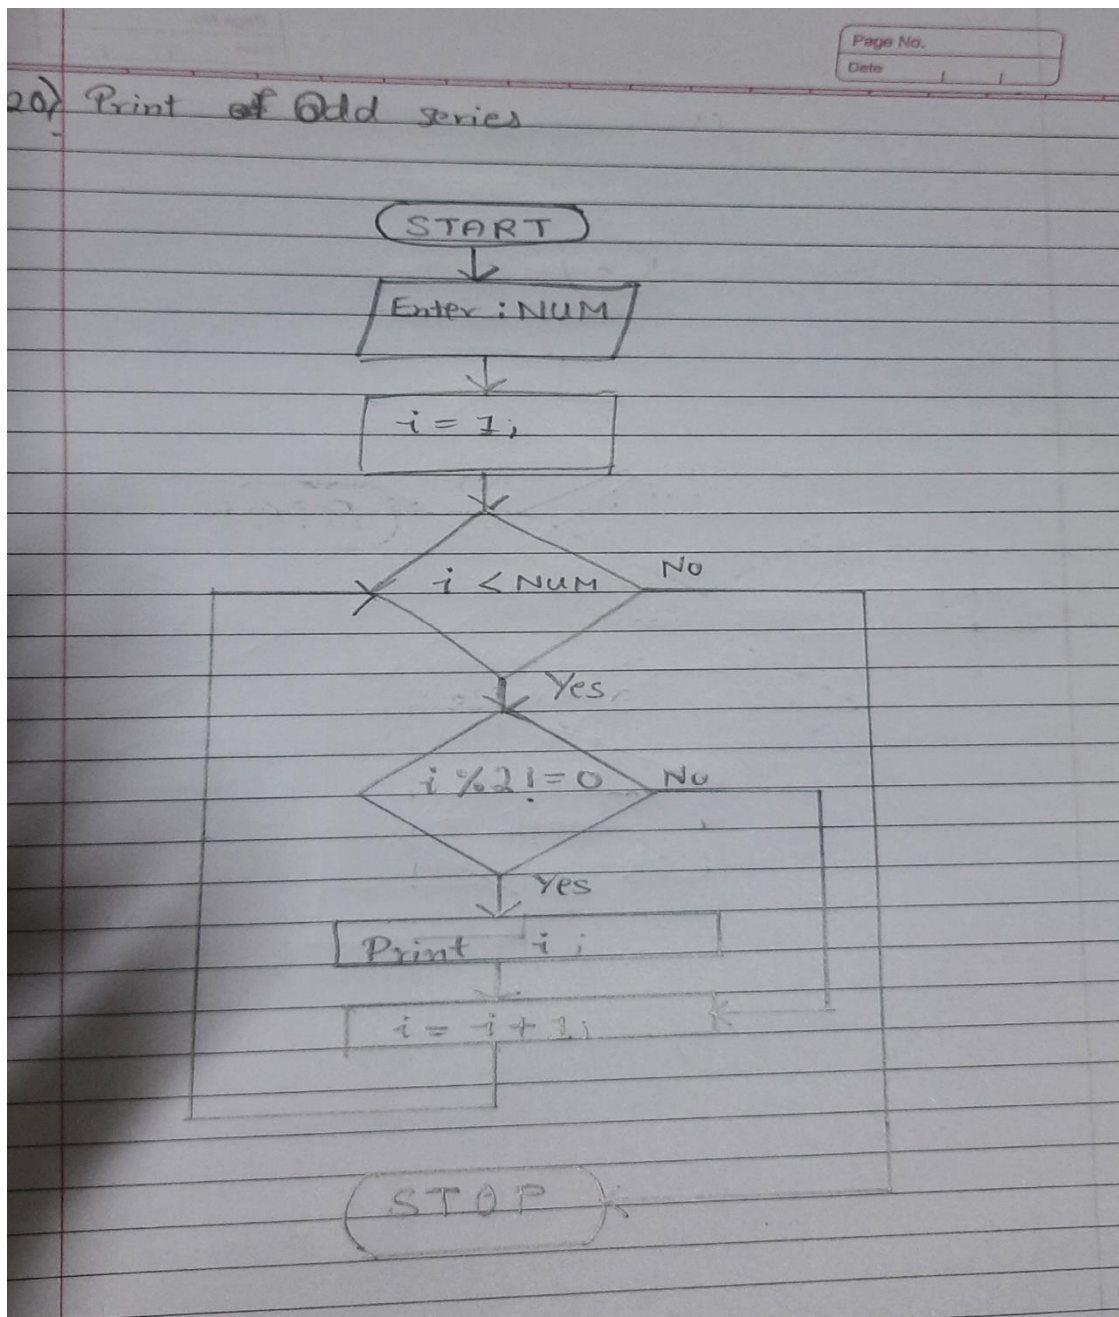 Page No.
Date
20) Print of Odd series
START
Enter : NUM
i = 1;
i < NUM
No
Yes
i % 2 != 0
No
Yes
Print i ;
i = i + 1;
STOP